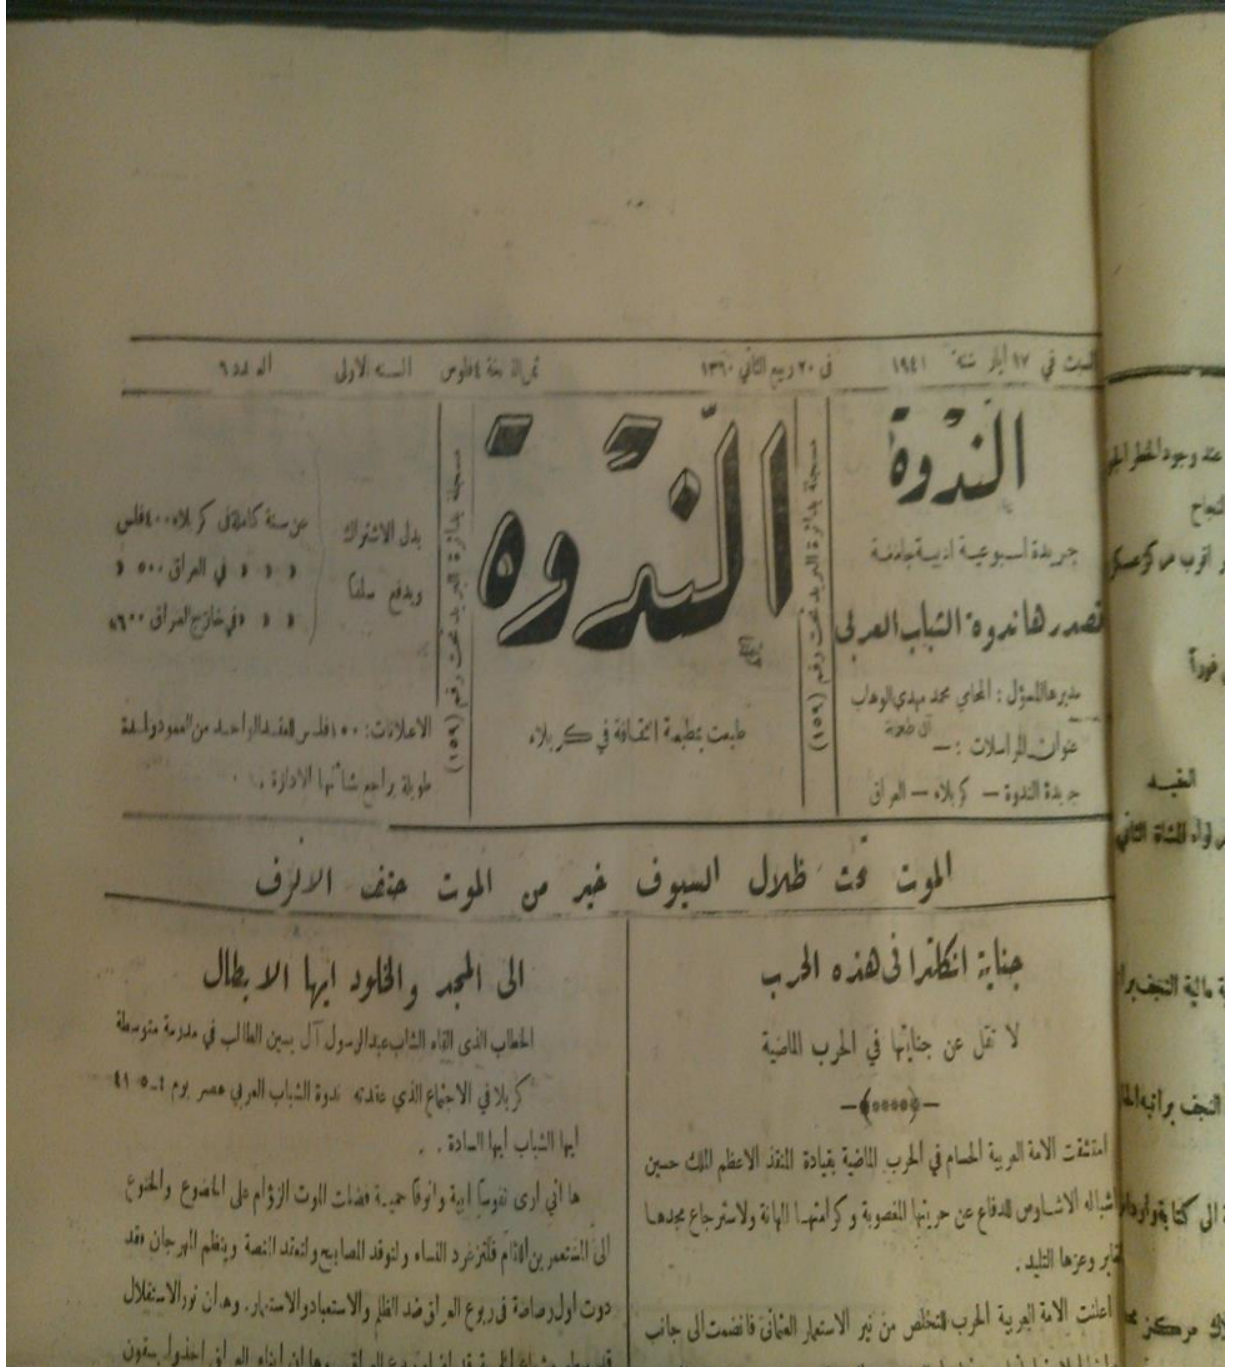 السبت في ١٧ أيار سنة ١٩٤١ في ٢٠ ربيع الثاني ١٣٦٠ ٤ فلوس السنه الاولى العدد ٦
الندوة
جريدة اسبوعية ادبية جامعة
تصدرها ندوة الشباب العربي
مديرها المسؤل : المحامي محمد مهدي الوهاب
آل طعمة
عنوان المراسلات : —
جريدة الندوة — كربلاء — العراق
مسجلة بدائرة البريد تحت رقم (١٥٩)
النّدْوة
طبعت بمطبعة الثقافة في كربلاء
مسجلة بدائرة البريد تحت رقم (١٥٩)
بدل الاشتراك
ويدفع سلفا
عن سنة كاملة في كربلاء ٤٠٠ فلس
« « « في العراق ٥٠٠ «
« « « في خارج العراق ٦٠٠ «
الاعلانات : من العمود ولمدة
طويلة يراجع بشأنها الادارة .
الموت تحت ظلال السيوف خير من الموت حتف الانف
جناية انكلترا في هذه الحرب
لا تقل عن جنايتها في الحرب الماضية
امتشقت الامة العربية الحسام في الحرب الماضية بقيادة المنقذ الاعظم الملك حسين
اشباله الاشاوس للدفاع عن حريتها المغصوبة وكرامتها المهانة ولاسترجاع مجدها
وعزها التليد .
اعلنت الامة العربية الحرب للتخلص من نير الاستعمار العثماني فانضمت الى جانب
الى المجد والخلود ايها الابطال
الخطاب الذى القاه الشاب عبدالرسول آل يسين الطالب في مدرسة متوسطة
كربلا في الاجتماع الذي عقدته ندوة الشباب العربي عصر يوم ٤ـ٥ـ٤١
أيها الشباب أيها السادة . .
ها اني ارى نفوسا ابية وانوفا حمية فضلت الموت الزؤام على الخضوع والخنوع
الى المستعمرين فلتزغرد النساء ولتوقد المصابيح ولتعقد المنصة وينظم المهرجان فقد
دوت اول رصاصة في ربوع العراق ضد الظلم والاستعباد والاستعمار. وهدان نور الاستقلال
عند وجود الخطر
النجاح
اقرب مركز عسكر
فوراً
لواء المشاة الثاني
مالية النجف
النجف
الى كتابة
مركز